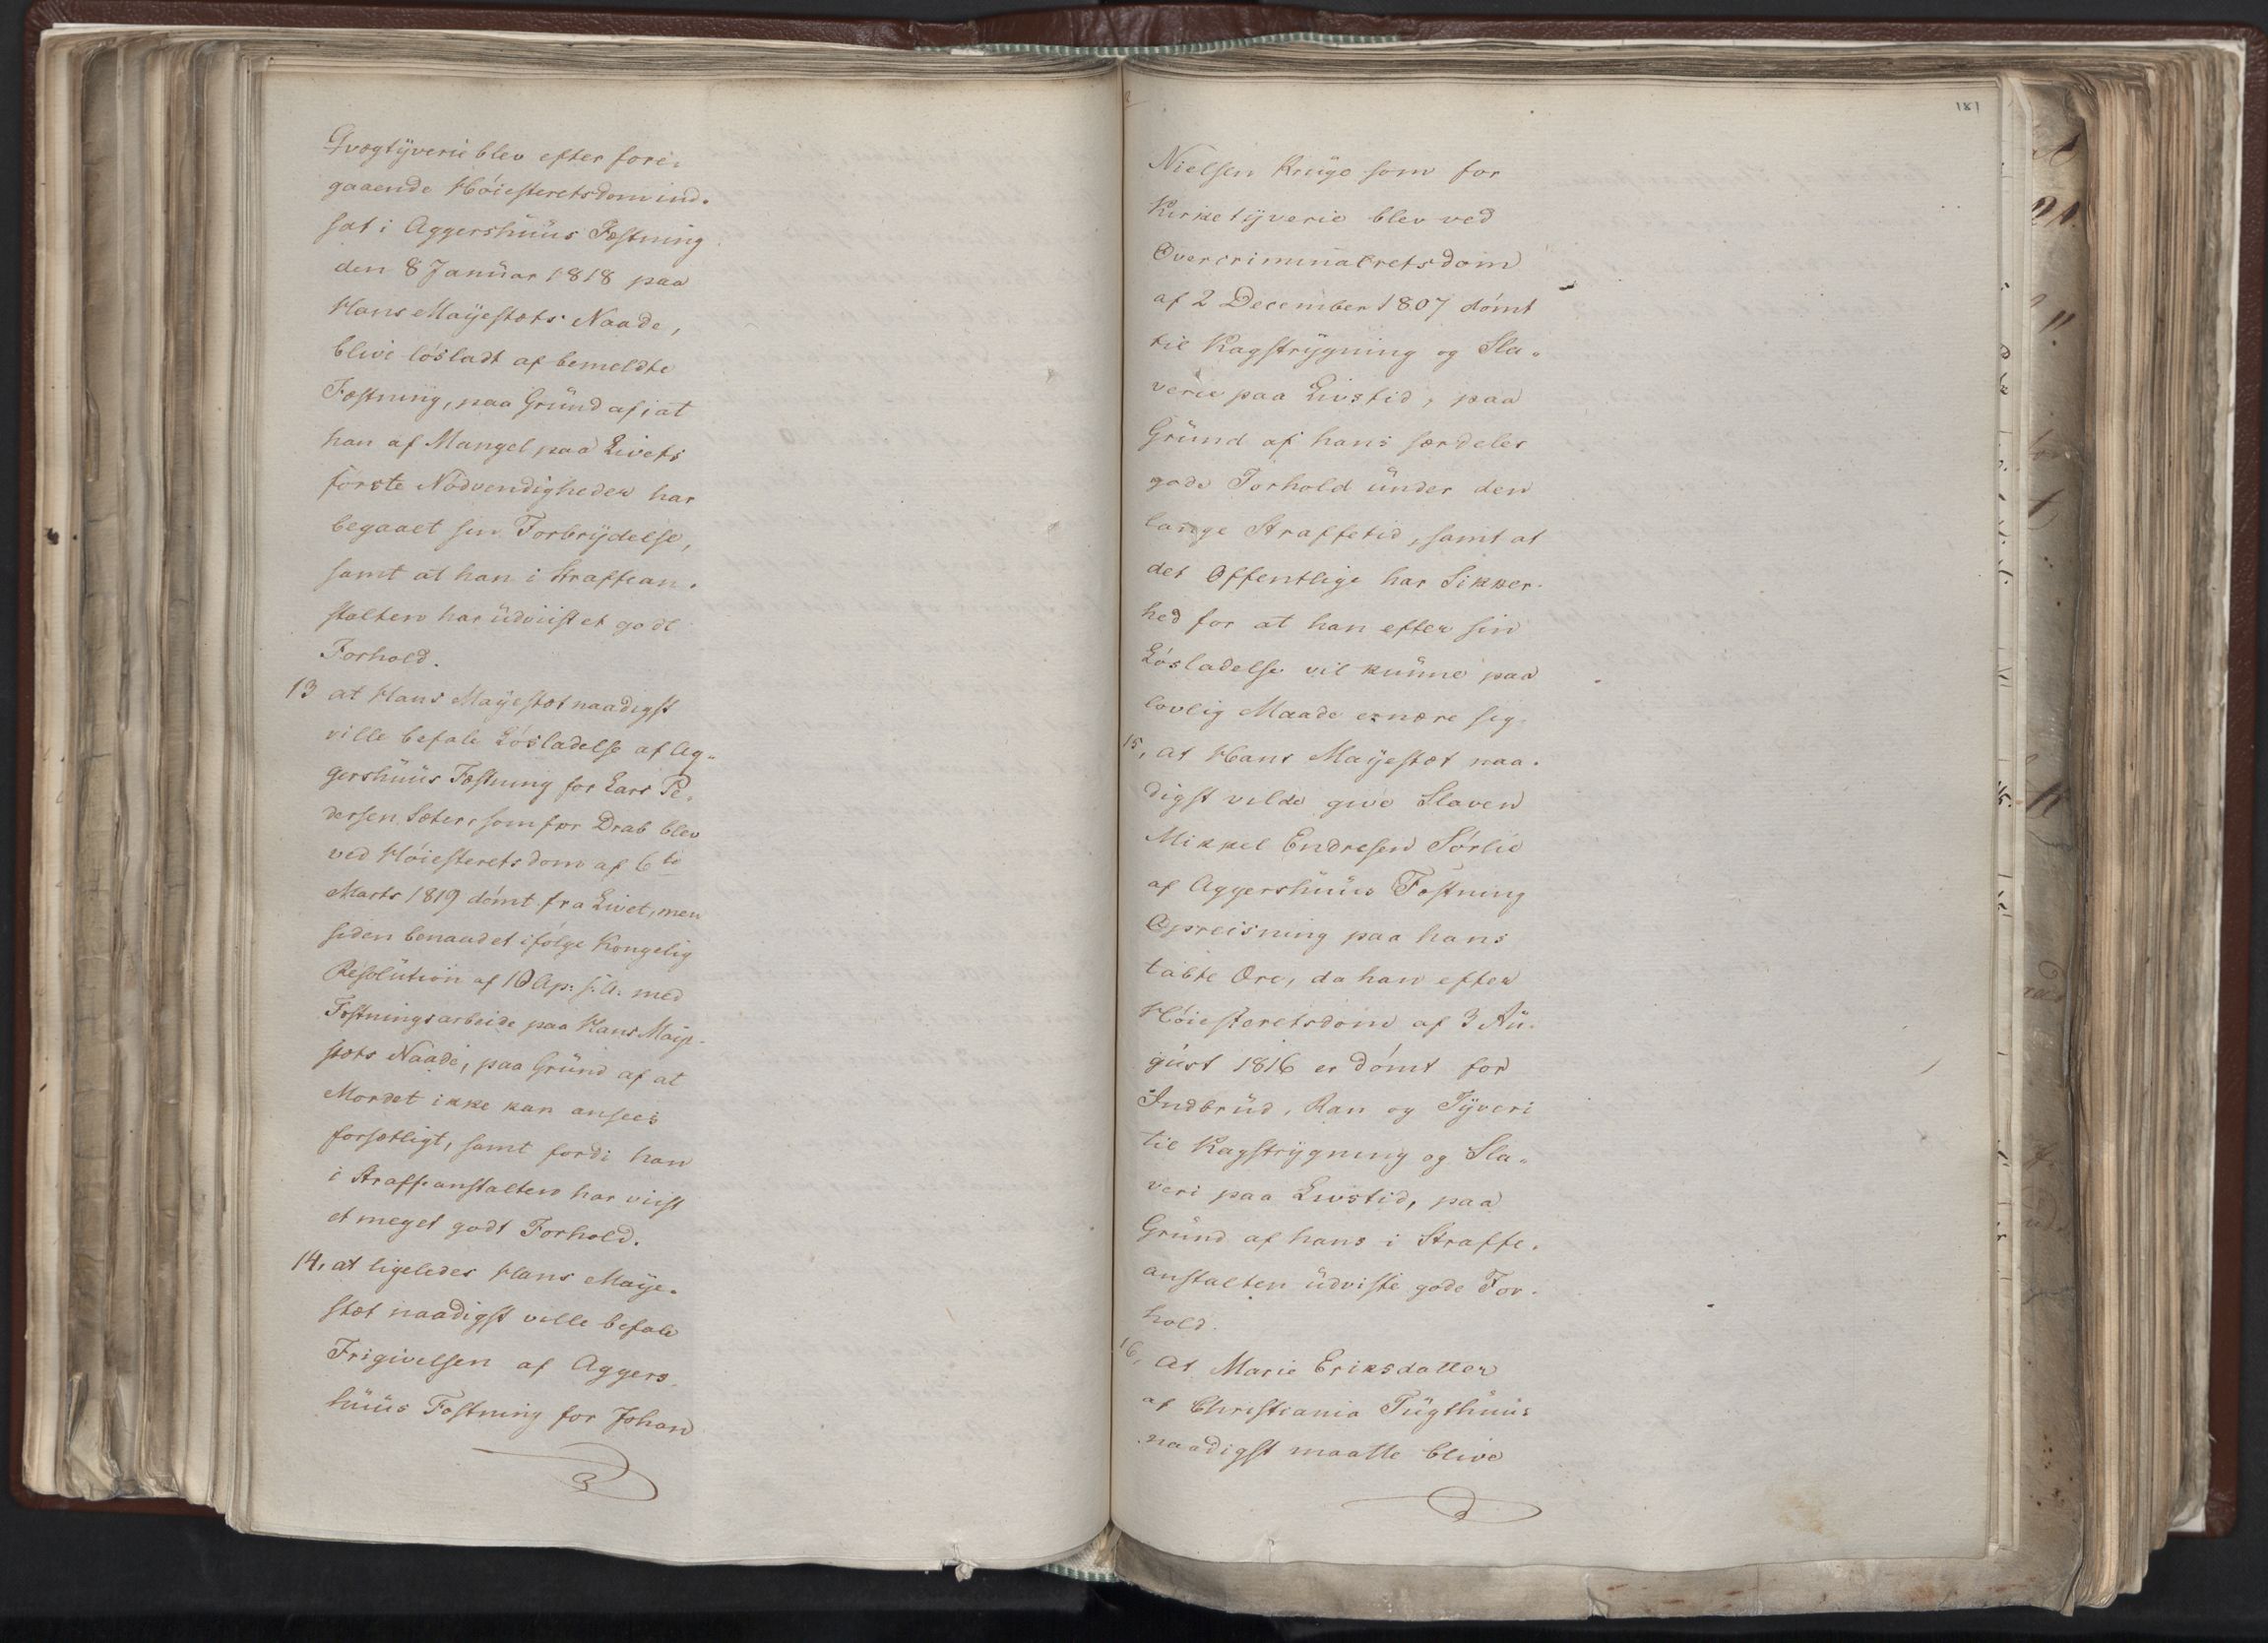 Qvægtÿverie blev efter fore-
gaaende Höiesteretsdom ind-
sat i Aggershuus Fæstning
den 8 Januar 1818 paa
Hans Mayestæts Naade,
blive lösladt af bemeldte
Fæstning, paa Grund af, at
han af Mangel paa Livets
förste Nödvendigheder har
begaaet sin Forbrÿdelse,
samt at han i Straffean-
stalten har udviist et godt
Forhold.
13 at Hans Mayestæt naadigst
ville befale Lösladelse af Ag-
gershuus Fæstning for Lars Pe-
dersen Sæter, som for Drab blev
ved Höiesteretsdom af 6te
Marts 1819 dömt fra Livet, men
siden benaadet ifölge Kongelig
Resolution af 10 Ap: s: A: med
Fæstningsarbeide paa Hans Maye-
stæts Naade, paa Grund af at
Mordet ikke kan ansees
forsætligt, samt fordi han
i Straffeanstalten har viist
et meget godt Forhold.
14, at ligeledes Hans Maye-
stæt naadigst ville befale
Frigivelsen af Aggers
huus Fæstning for Johan
181
Nielsen Kruge som for
Kirketÿverie blev ved
Overcriminalretsdom
af 2 December 1807 dömt
til Kagstrÿgning og Sla-
verie paa Livstid, paa
Grund af hans særdeles
gode Forhold under den
lange Straffetid, samt at
det Offentlige har Sikker-
hed for at han efter sin
Lösladelse vil kunne paa
lovlig Maade ernære sig.
15, at Hans Mayestæt naa-
digst vilde give Slaven
Mikkel Endresen Sörlie
af Aggershuus Fæstning
Opreisning paa hans
tabte Ære, da han efter
Höiesteretsdom af 3 Au-
gust 1816 er dömt for
Indbrud, Ran og Tÿveri
til Kagstrÿgning og Sla-
veri paa Livstid, paa
Grund af hans i Straffe-
anstalten udviste gode For-
hold.
16, at Marie Eriksdatter
af Christiania Tugthuus
naadigst maatte blive